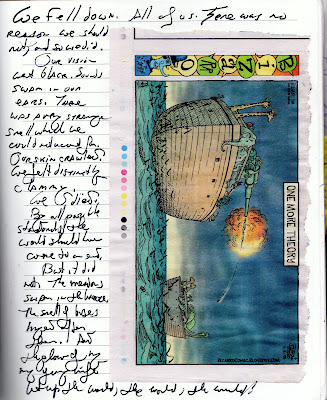 We fell down. All of us. There was no
reason we should
not, and so we did.
Our vision
went black. Sounds
swam in our
ears. There
was a very strange
smell which we
could not account for.
Our skin crawled.
We felt distinctly
clammy.
We died.
By all
standards the
world should have
come to an end,
But it did
not. The meadows
swam in the
The smell of roses
on
my
up the world, the world, the world!
BIZARRO
ONE MORE THEORY
BIZARROCOMIC.BLOGSPOT.COM